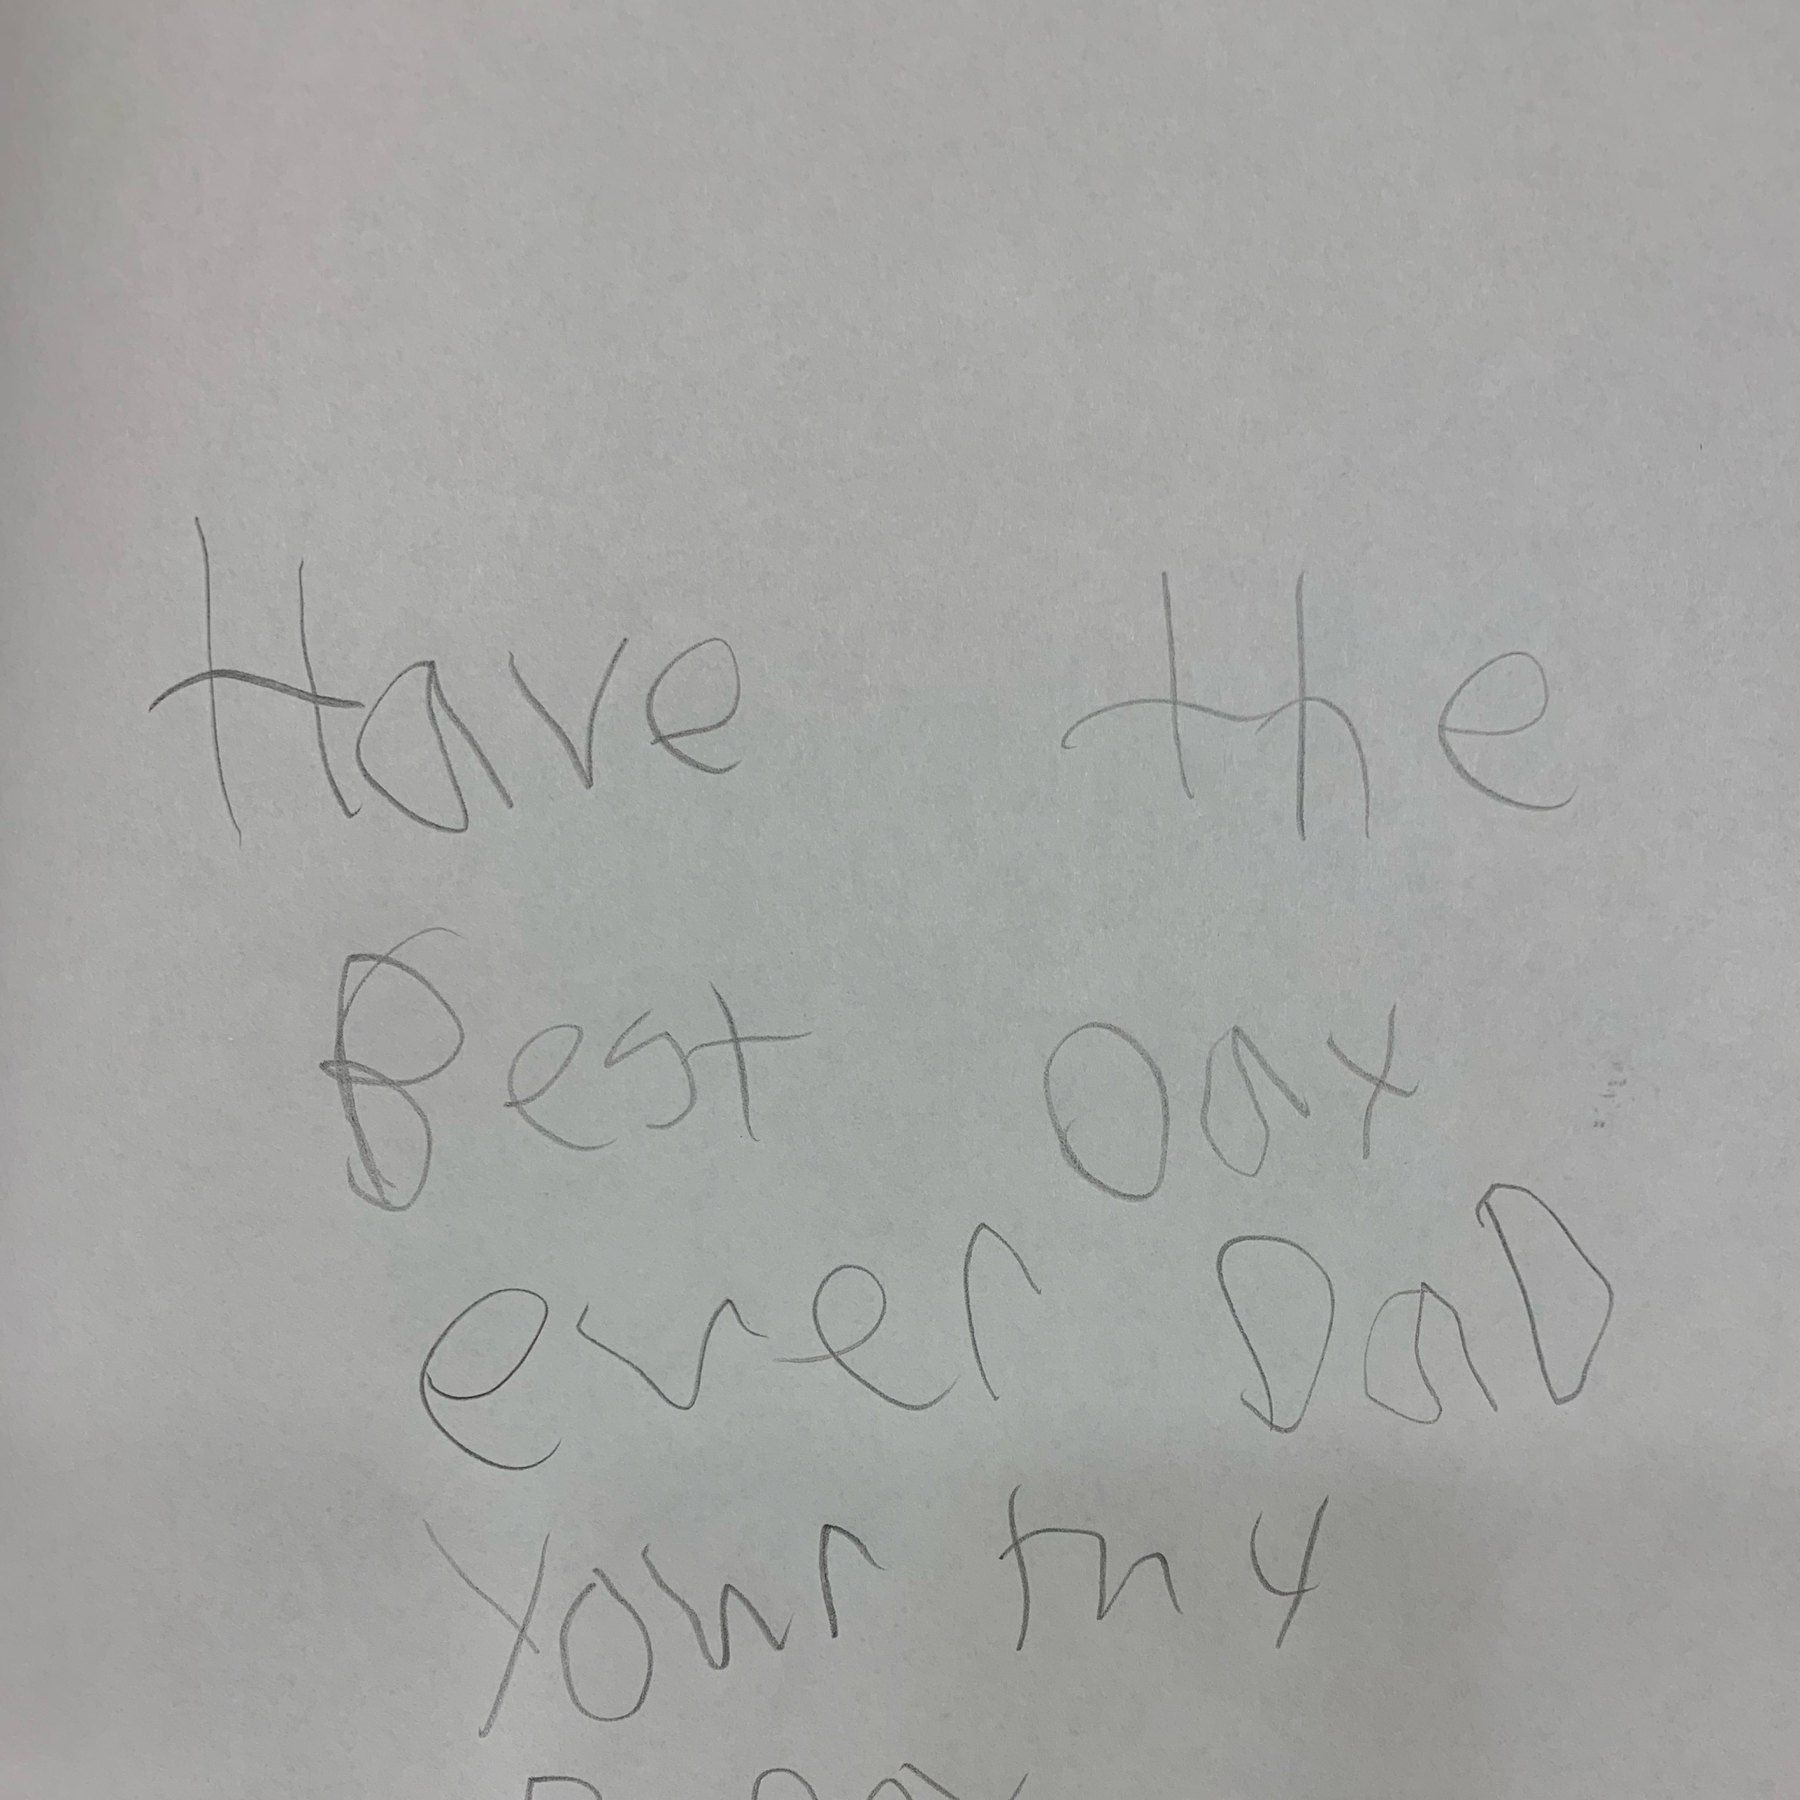 Have the
Best Day
ever DaD
your